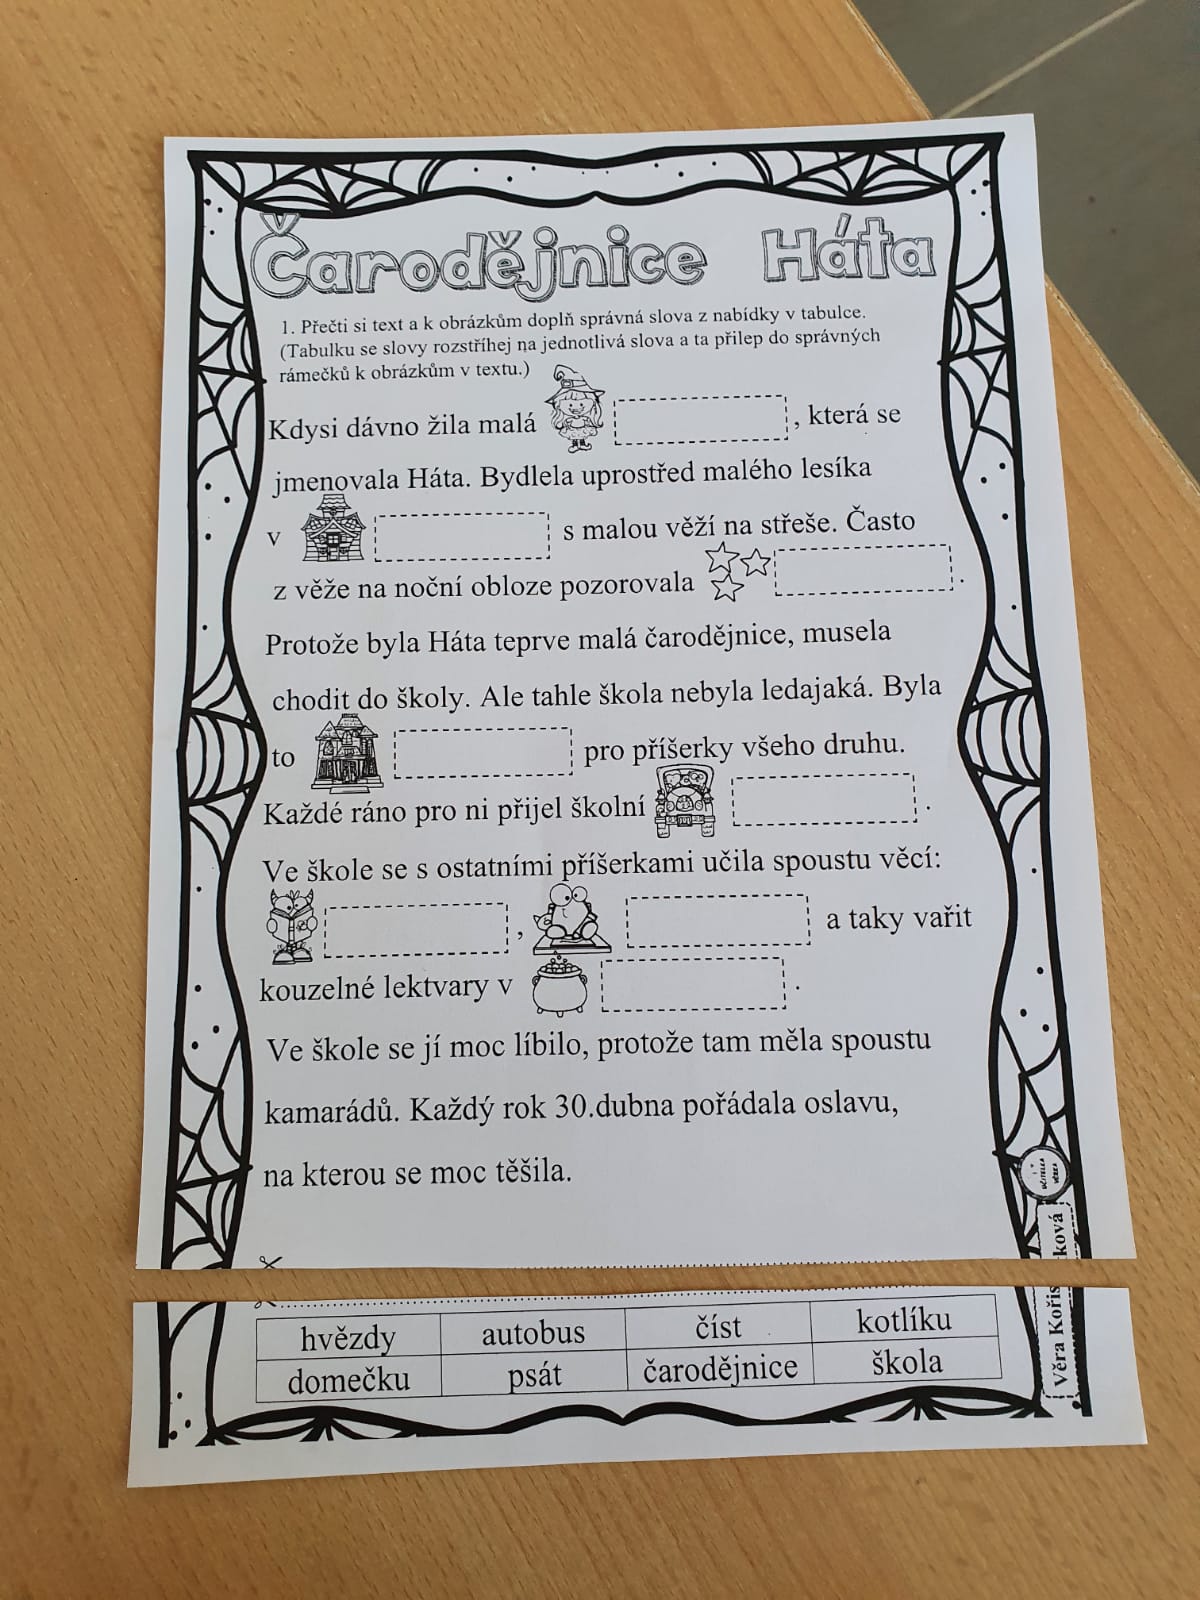 Čarodějnice Háta
1. Přečti si text a k obrázkům doplň správná slova z nabídky v tabulce.
(Tabulku se slovy rozstříhej na jednotlivá slova a ta přilep do správných
rámečků k obrázkům v textu.)
Kdysi dávno žila malá , která se
jmenovala Háta. Bydlela uprostřed malého lesíka
v s malou věží na střeše. Často
z věže na noční obloze pozorovala .
Protože byla Háta teprve malá čarodějnice, musela
chodit do školy. Ale tahle škola nebyla ledajaká. Byla
to pro příšerky všeho druhu.
Každé ráno pro ni přijel školní .
Ve škole se s ostatními příšerkami učila spoustu věcí:
, a taky vařit
kouzelné lektvary v .
Ve škole se jí moc líbilo, protože tam měla spoustu
kamarádů. Každý rok 30.dubna pořádala oslavu,
na kterou se moc těšila.
UČITELKA
VĚRKA
hvězdy autobus číst kotlíku
domečku psát čarodějnice škola
Věra Kořis
tková